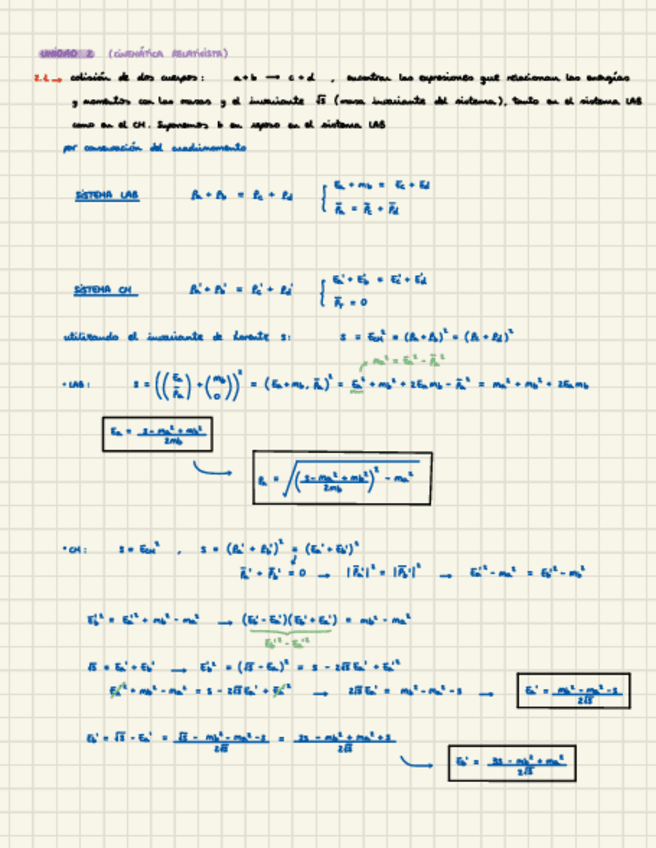 UNIDAD 2 (CINEMÁTICA RELATIVISTA)
2.1 → colisión de dos cuerpos: a+b → c+d , encontrar las expresiones que relacionan las energías
y momentos con las masas y el invariante √s (masa invariante del sistema), tanto en el sistema LAB
como en el CM. Suponemos b en reposo en el sistema LAB
por conservación del cuadrimomento
SISTEMA LAB Pa + Pb = Pc + Pd { Ea + mb = Ec + Ed
p̄a = p̄c + p̄d
SISTEMA CM Pa' + Pb' = Pc' + Pd' { Ea' + Eb' = Ec' + Ed'
p̄T = 0
utilizando el invariante de Lorentz s: s = ECM² = (Pa + Pb)² = (Pc + Pd)²
ma² = Ea² - p̄a²
· LAB: s = ((Ea p̄a) + (mb 0))² = (Ea + mb, p̄a)² = Ea² + mb² + 2Ea mb - p̄a² = ma² + mb² + 2Ea mb
Ea = s - ma² + mb² / 2mb
Pa = √((s - ma² + mb² / 2mb)² - ma²)
· CM: s = ECM² , s = (Pa' + Pb')² = (Ea' + Eb')²
p̄a' + p̄b' = 0 → |p̄a'|² = |p̄b'|² → Ea'² - ma² = Eb'² - mb²
Eb'² = Ea'² + mb² - ma² → (Eb' - Ea')(Eb' + Ea') = mb² - ma²
Eb'² - Ea'²
√s = Ea' + Eb' → Eb'² = (√s - Ea')² = s - 2√s Ea' + Ea'²
Ea'² + mb² - ma² = s - 2√s Ea' + Ea'² → 2√s Ea' = mb² - ma² - s → Ea' = mb² - ma² - s / 2√s
Eb' = √s - Ea' = √s - mb² - ma² - s / 2√s = 2s - mb² + ma² + s / 2√s
Eb' = 3s - mb² + ma² / 2√s